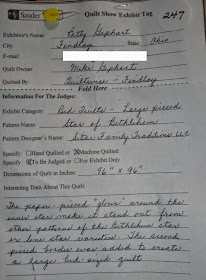 Sauder Quilt Show Exhibit Tag 247
Exhibitor's Name: Betty Gephart
City Findlay State Ohio
Quilt Owner Mike Gephart
Quilted By Quiltwerse - Findlay
Fold Here
Information For The Judges:
Exhibit Category Bed Quilts - Large pieced
Pattern Name Star of Bethlehem
Pattern Designer's Name Star Family Traditions LLC
Specify: Hand Quilted or Machine Quilted
Specify: To be Judged or For Exhibit Only
Dimensions of Quilt in Inches 96" x 96"
Interesting Data About This Quilt:
The paper pieced "glows" around the
inner star make it stand out from
other patterns of the Bethlehem star
or lone star varieties. The second
pieced border was added to create
a large bed-sized quilt